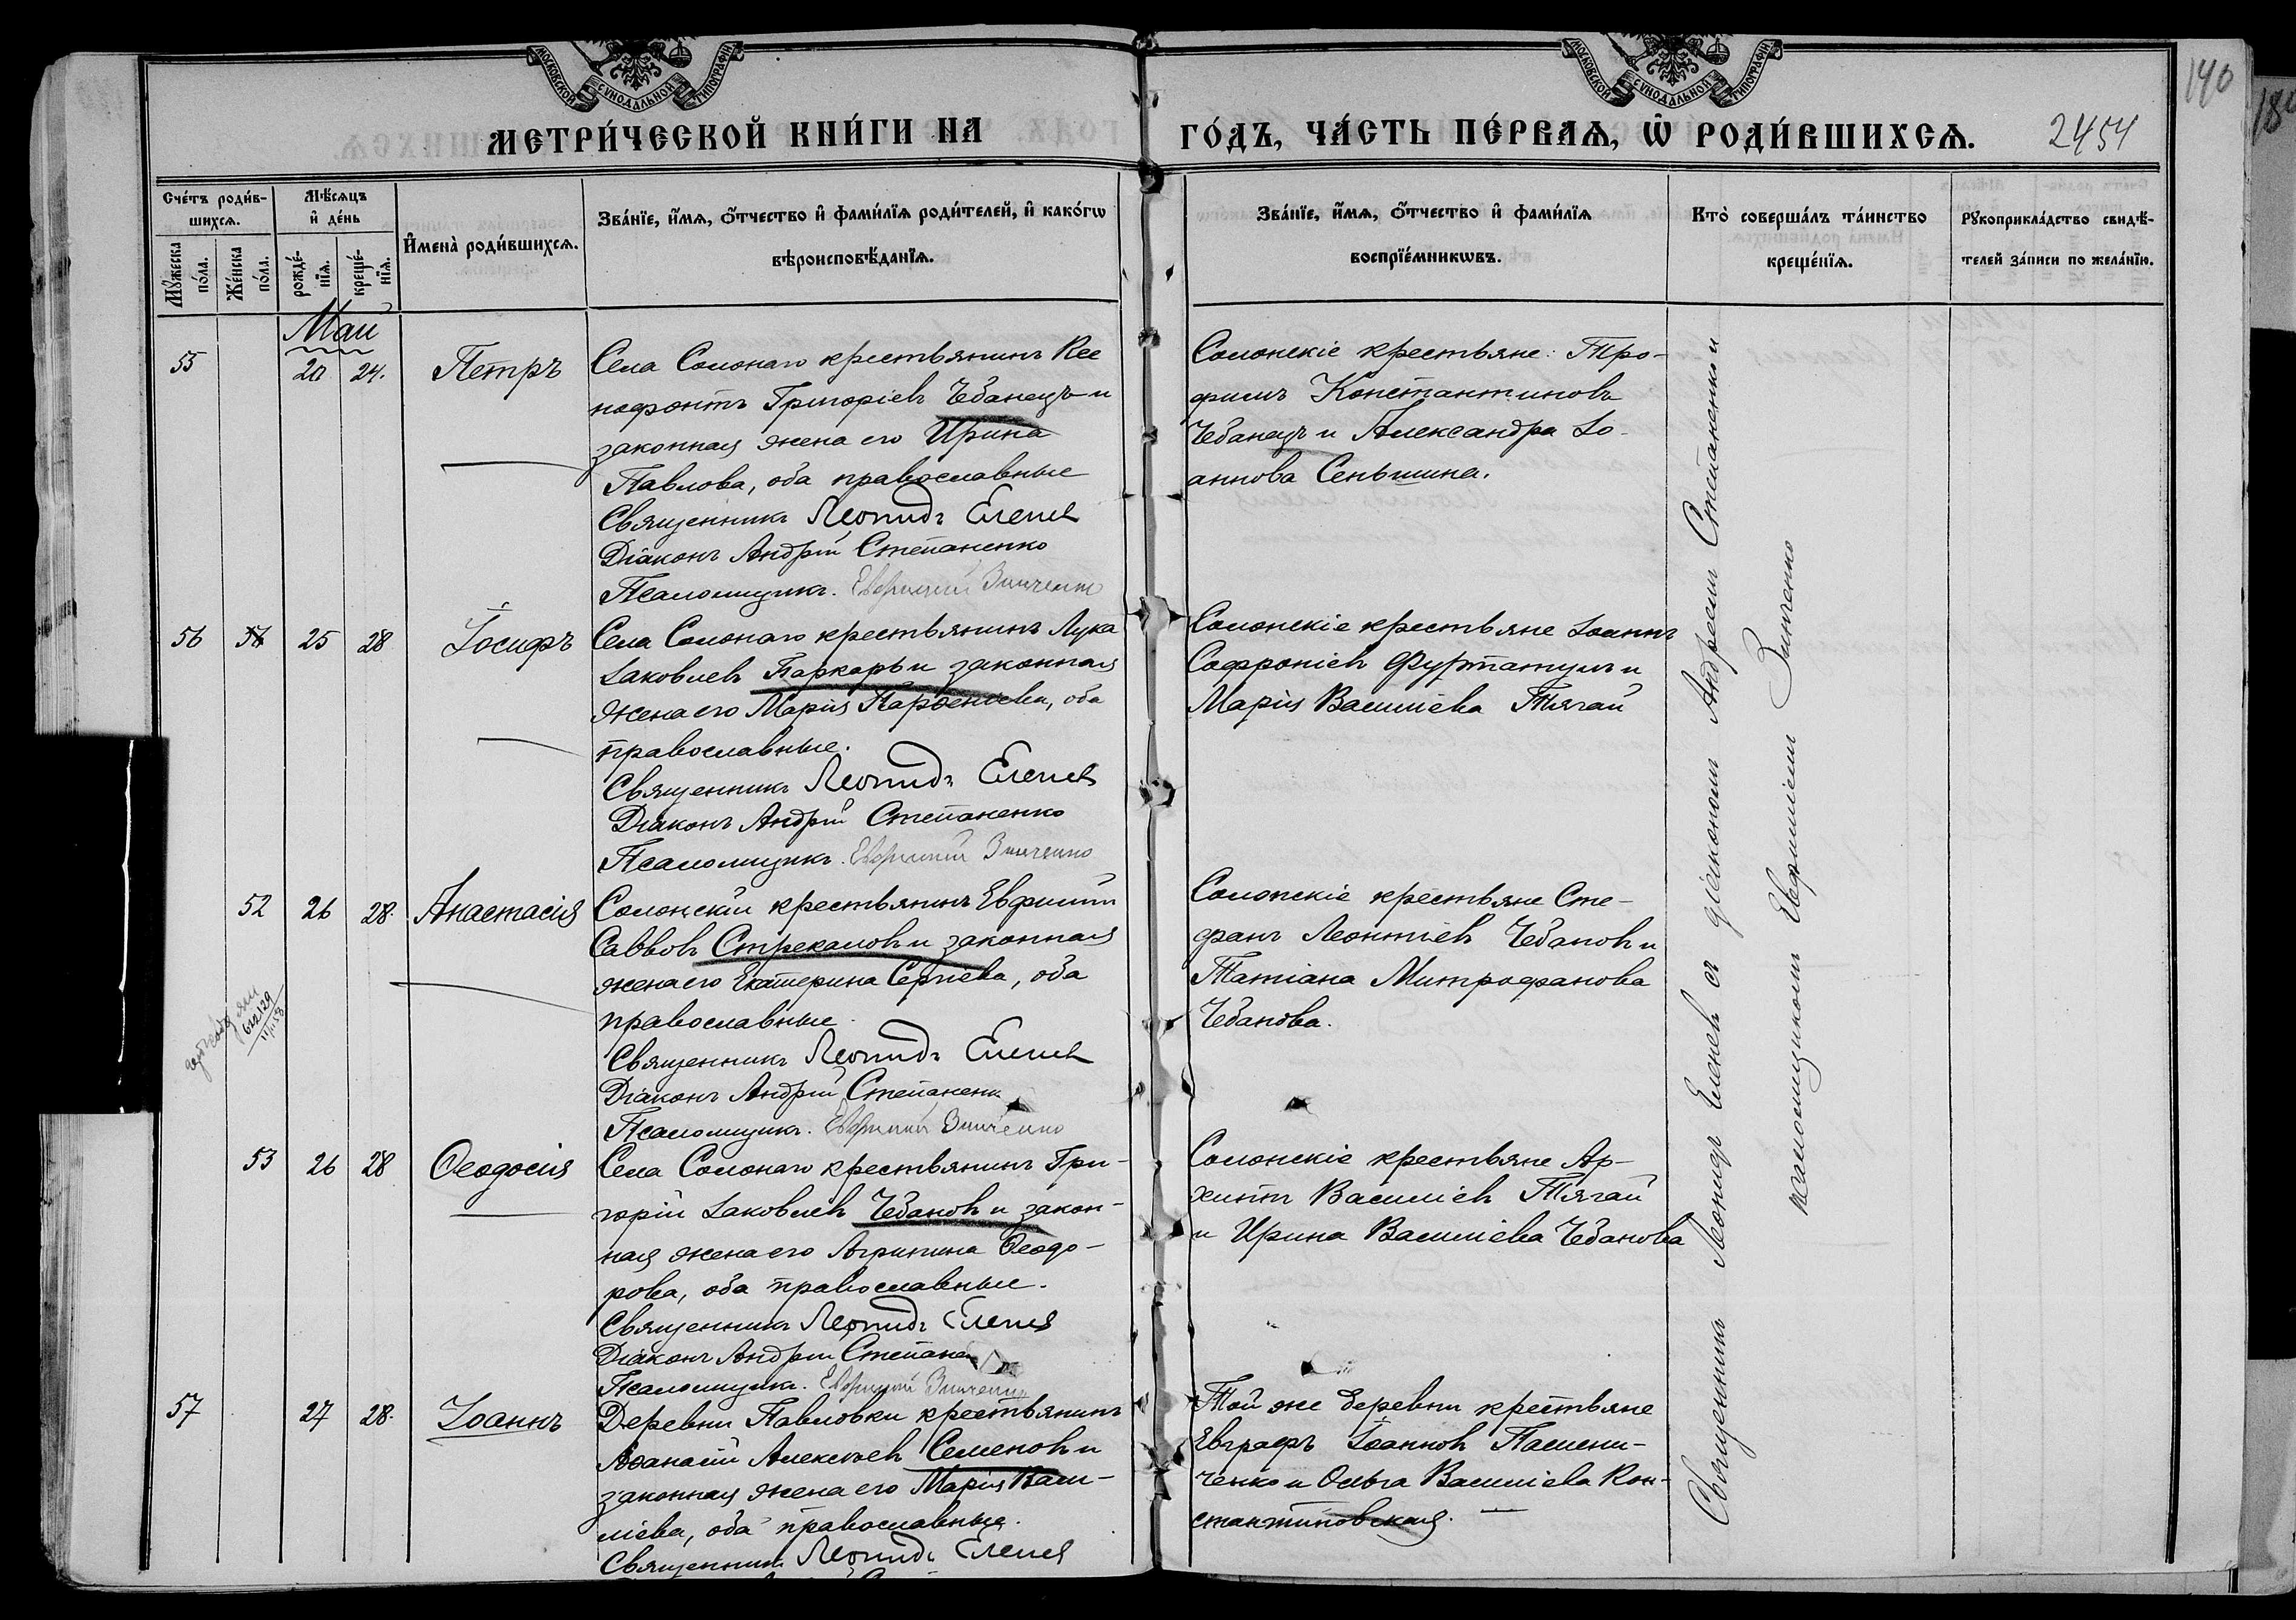 МОСКОВСКОЙ СѴНОДАЛЬНОЙ ТИПОГРАФІИ
МОСКОВСКОЙ СѴНОДАЛЬНОЙ ТИПОГРАФІИ
190
МЕТРИ́ЧЕСКОЙ КНИ́ГИ НА
ГО́ДЪ, ЧА́СТЬ ПЕ́РВАЯ, Ѽ РОДИ́ВШИХСЯ.
2454
Сче́тъ роди́в-
шихся.
Мѣ́сяцъ
и҆ де́нь
Мꙋ́жеска по́ла.
Же́нска по́ла.
рожде́-нїя.
креще́-нїя.
И҆мена̀ роди́вшихся.
Зва́нїе, и҆́мя, о҆́тчество и҆ фами́лїя роди́телей, и҆ како́гѡ
вѣроисповѣ́данїя.
Зва́нїе, и҆́мя, о҆́тчество и҆ фами́лїя
воспрїе́мникѡвъ.
Кто̀ соверша́лъ та́инство
креще́нїя.
Рꙋкоприкла́дство свидѣ́-
телей за́писи по жела́нїю.
Май
55 20 24. Петръ
Села Солонаго крестьянинъ Ксе
нофонтъ Григоріевъ Чебанецъ и
законная жена его Ирина
Павлова, оба православные
Священникъ Леонидъ Еленевъ
Діаконъ Андрій Степаненко
Псаломщикъ. Евфимій Зинченко
Солонскіе крестьяне: Тро-
фимъ Константиновъ
Чебанецъ и Александра Іо-
аннова Сеньшина.
56 25 28 Іосифъ
Села Солонаго крестьянинъ Лука
Іаковлевъ Паркарь и законная
жена его Марія Парѳеніева, оба
православные.
Священникъ Леонидъ Еленевъ
Діаконъ Андрій Степаненко
Псаломщикъ. Евфимій Зинченко
Солонскіе крестьяне Іоаннъ
Софроніевъ Фуртатулъ и
Марія Василіева Тягай
52 26 28. Анастасія
Солонскій крестьянинъ Евфимій
Саввовъ Стрекаловъ и законная
жена его Екатерина Сергіева, оба
православные.
Священникъ Леонидъ Еленевъ
Діаконъ Андрій Степаненк
Псаломщикъ. Евфимій Зинченко
Солонскіе крестьяне Сте-
фанъ Леонтіевъ Чебановъ и
Татіана Митрофанова
Чебанова.
53 26 28 Ѳеодосія
Села Солонаго крестьянинъ Гри-
горій Іаковлевъ Чебановъ и закон-
ная жена его Агрипина Ѳеодо-
рова, оба православные.
Священникъ Леонидъ Еленевъ
Діаконъ Андрій Степанен
Псаломщикъ. Евфимій Зинченко
Солонскіе крестьяне Ар-
хиппъ Василіевъ Тягай
и Ирина Василіева Чебанова
57 27 28. Іоаннъ
Деревни Павловки крестьянинъ
Аѳанасій Алексѣевъ Семеновъ и
законная жена его Марія Васи-
ліева, оба православные.
Священникъ Леонидъ Еленевъ
Той же деревни крестьяне
Евграфъ Іоанновъ Пасени-
ченко и Ольга Василіева Кон-
стантиновская.
Священникъ Леонидъ Еленевъ съ діакономъ Андреемъ Степаненко и
псаломщикомъ Евфиміемъ Зинченко